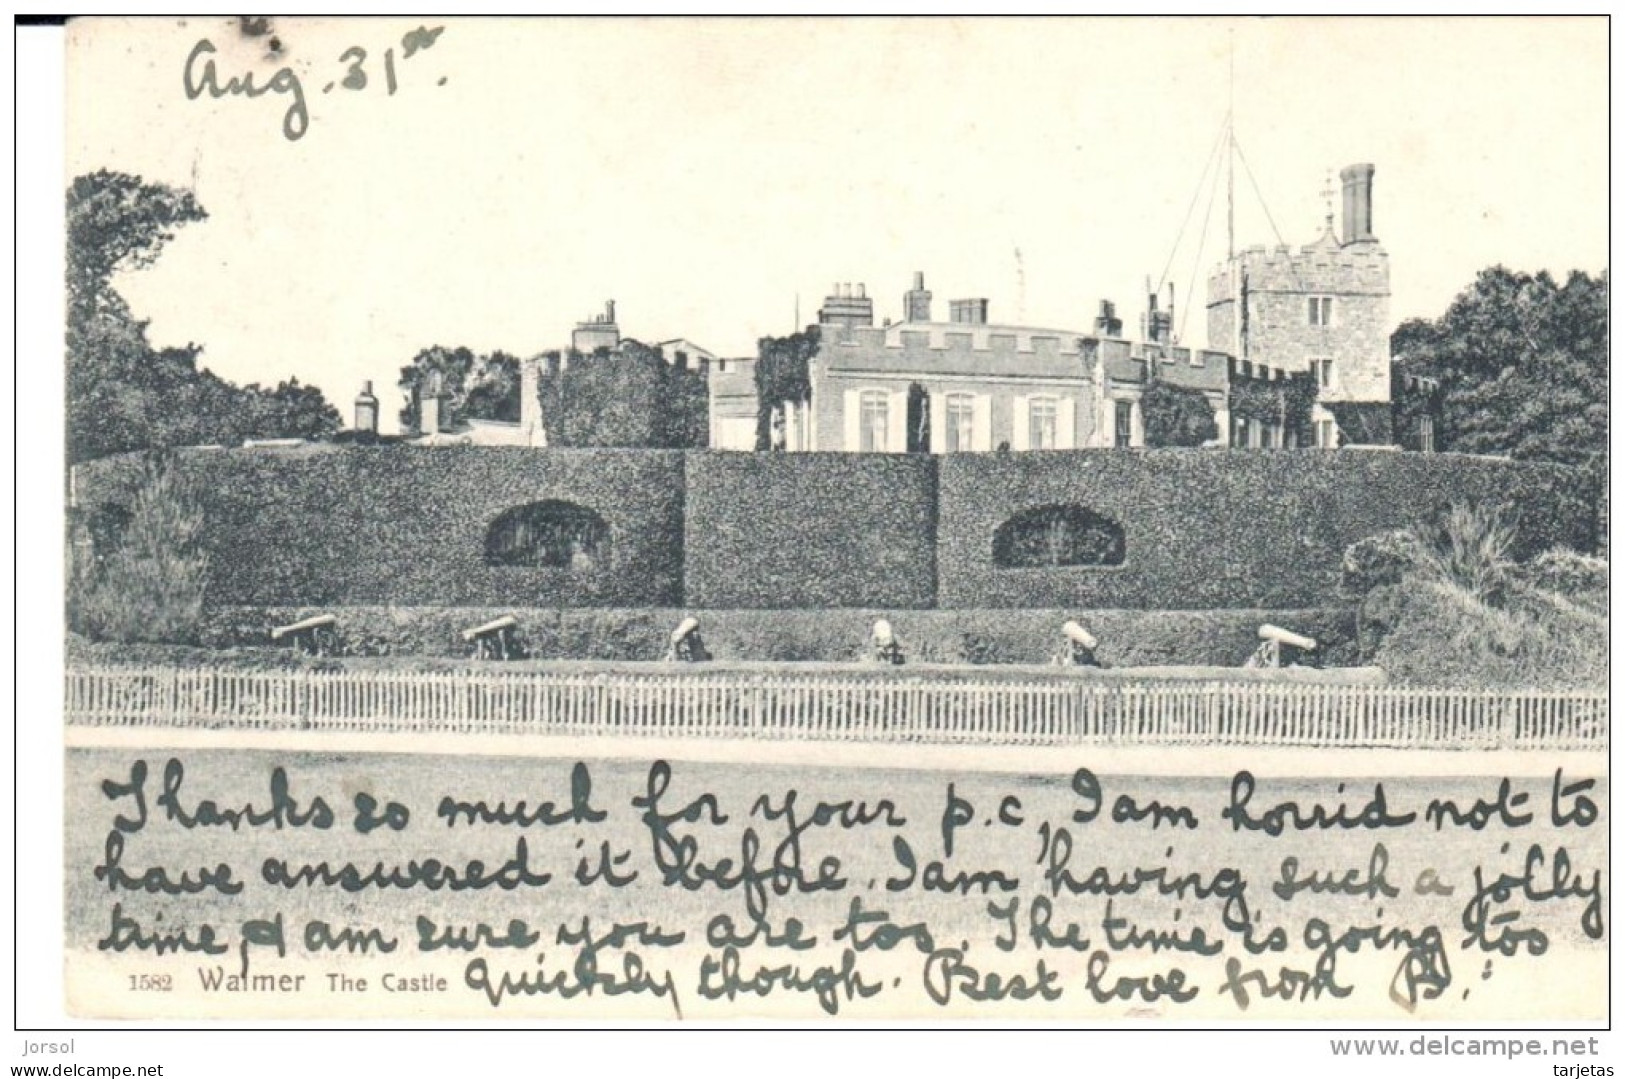 Aug. 31st.
Thanks so much for your p.c, I am horrid not to
have answered it before. I am having such a jolly
time, & am sure you are too. The time is going too
quickly though. Best love from B.
1582 Walmer The Castle
Jorsol
www.delcampe.net
myse.com
tarjetas